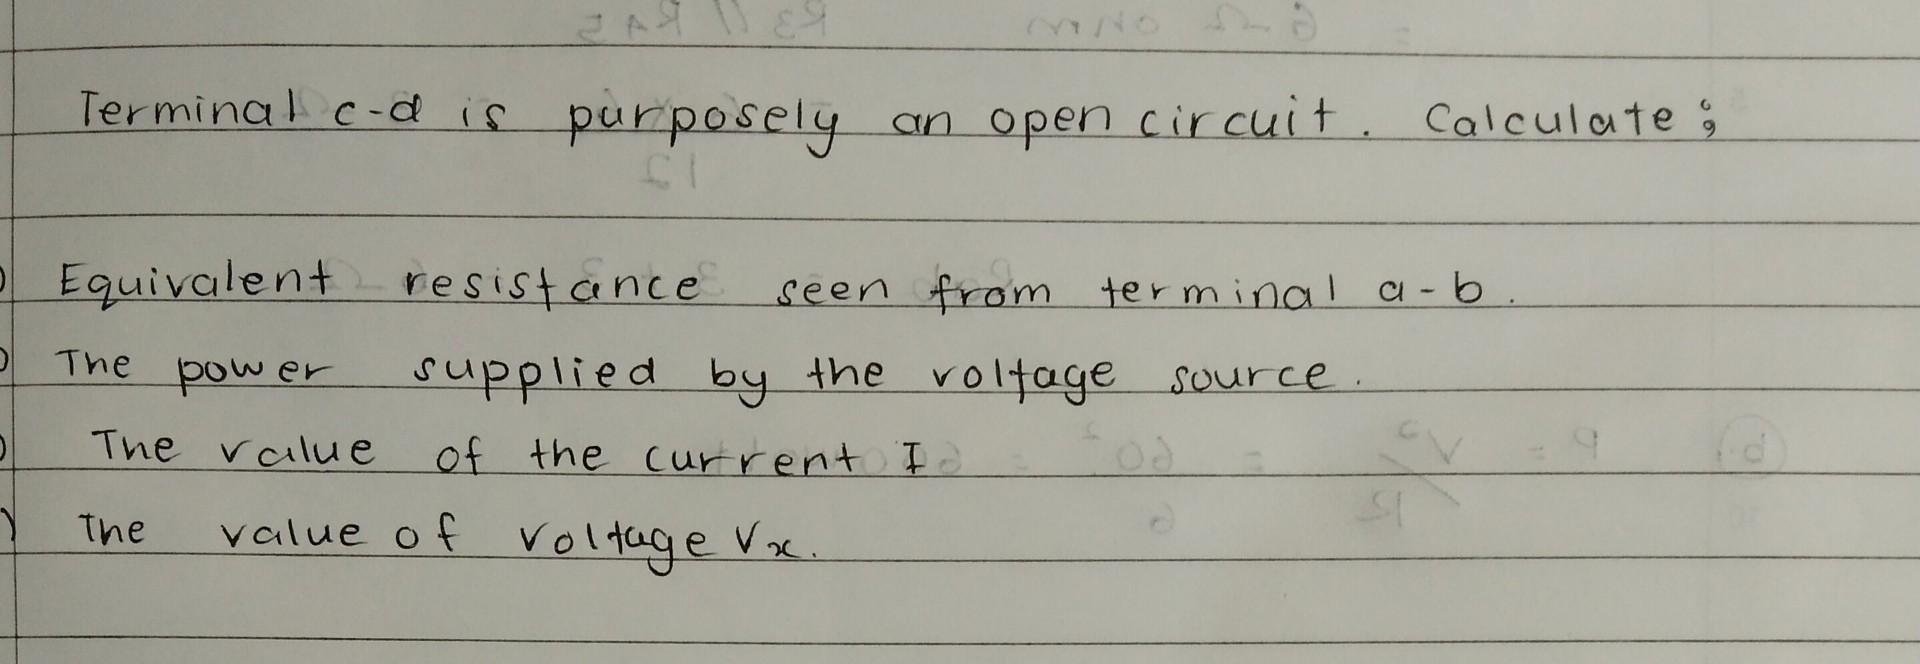 Terminal c-d is purposely an open circuit. Calculate :
Equivalent resistance seen from terminal a-b.
The power supplied by the voltage source.
The value of the current I
The value of voltage Vx.